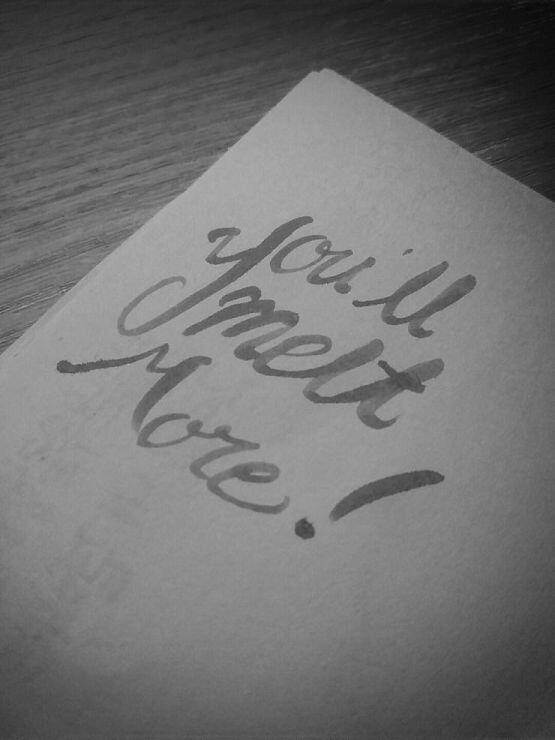 You'll
melt
More!